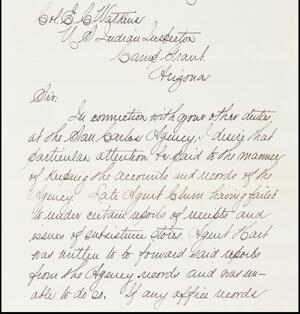 Col. E. C. Watkins
U.S. Indian Inspector
Camp Grant.
Arizona
Sir.
In connection with your other duties,
at the San Carlos Agency, I desire that
particular attention be paid to the manner
of keeping the accounts and records of the
Agency. Late Agent Clum having failed
to render certain reports of receipts and
issues of subsistence stores, Agent Hart
was written to to forward said reports
from the Agency records and was un-
able to do so. If any office records